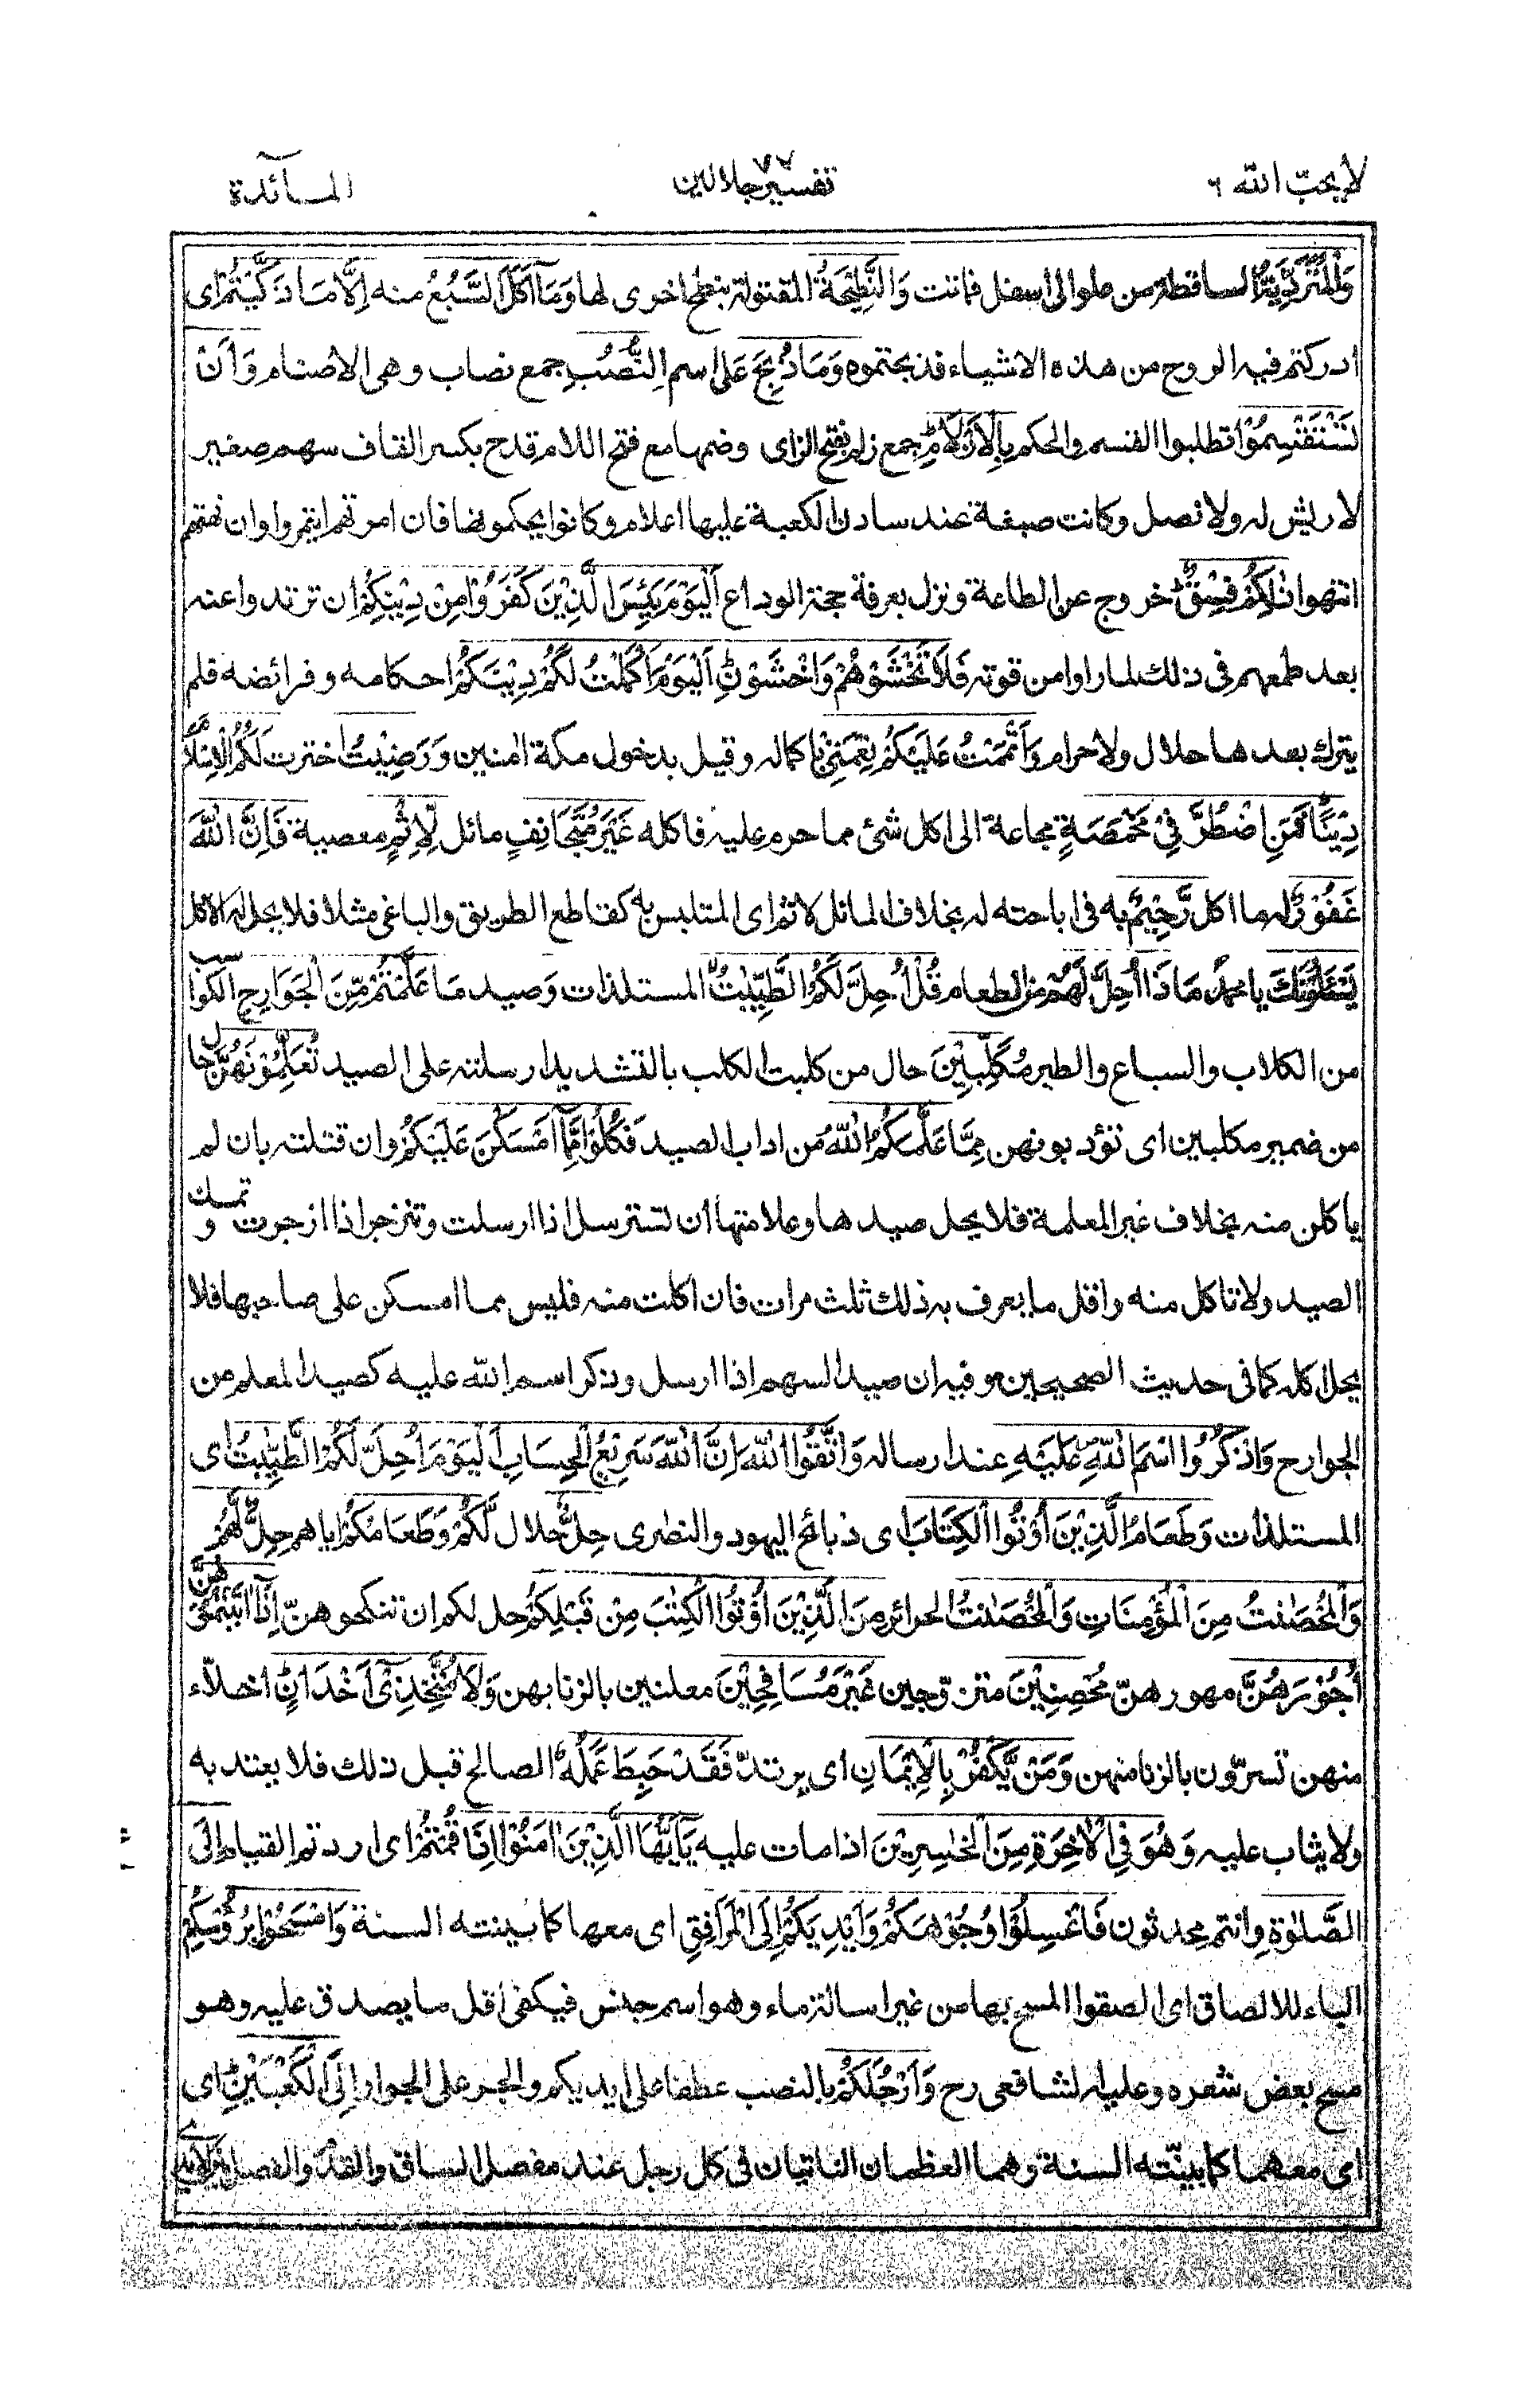 لا يحبّ الله ٦
٧٧
تفسير جلالين
المائدة
وَالْمُتَرَدِّيَةُ الساقطة من علو الى اسفل فماتت وَالنَّطِيْحَةُ المقتولة بنطح اخرى لها وَمَآ اَكَلَ السَّبُعُ منه اِلَّا مَا ذَكَّيْتُمْ اى
ادركتم فيه الروح من هذه الاشياء فذبحتموه وَمَا ذُبِحَ عَلَى اسم النُّصُبِ جمع نصاب وهى الاصنام وَاَنْ
تَسْتَقْسِمُوْا تطلبوا القسم والحكم بِالْاَزْلَامِ جمع زلم بفتح الزاى وضمها مع فتح اللام قدح بكسر القاف سهم صغير
لا ريش له ولا نصل وكانت صبغة عند سادن الكعبة عليها اعلام وكانوا يحكمونها فان امرتهم ايتمروا وان نهتهم
انتهوا ذٰلِكُمْ فِسْقٌ خروج عن الطاعة ونزل بعرفة حجة الوداع اَلْيَوْمَ يَئِسَ الَّذِيْنَ كَفَرُوْا مِنْ دِيْنِكُمْ ان ترتدوا عنه
بعد طمعهم فى ذلك لما راوا من قوته فَلَا تَخْشَوْهُمْ وَاخْشَوْنِ اَلْيَوْمَ اَكْمَلْتُ لَكُمْ دِيْنَكُمْ احكامه وفرائضه فلم
يترك بعدها حلال ولا حرام وَاَتْمَمْتُ عَلَيْكُمْ نِعْمَتِىْ باكماله وقيل بدخول مكة اٰمنين وَرَضِيْتُ اخترت لَكُمُ الْاِسْلَامَ
دِيْنًا فَمَنِ اضْطُرَّ فِىْ مَخْمَصَةٍ مجاعة الى اكل شئ مما حرم عليه فاكله غَيْرَ مُتَجَانِفٍ مائل لِّاِثْمٍ معصية فَاِنَّ اللّٰهَ
غَفُوْرٌ له ما اكل رَّحِيْمٌ به فى اباحته له بخلاف المائل لاثم اى المتلبس به كقاطع الطريق والباغى مثلا فلا يحل له الاكل
يَسْئَلُوْنَكَ يا محمد مَاذَا اُحِلَّ لَهُمْ من الطعام قُلْ اُحِلَّ لَكُمُ الطَّيِّبٰتُ المستلذات وَ صيد مَا عَلَّمْتُمْ مِّنَ الْجَوَارِحِ الكواسب
من الكلاب والسباع والطير مُكَلِّبِيْنَ حال من كلبت الكلب بالتشديد ارسلته على الصيد تُعَلِّمُوْنَهُنَّ حال
من ضمير مكلبين اى تؤدبونهن مِمَّا عَلَّمَكُمُ اللّٰهُ من اداب الصيد فَكُلُوْا مِمَّآ اَمْسَكْنَ عَلَيْكُمْ وان قتلته بان لم
ياكلن منه بخلاف غير المعلمة فلا يحل صيدها وعلامتها ان تسترسل اذا ارسلت وتنزجر اذا ازجرت و تمسك
الصيد ولا تاكل منه واقل ما يعرف به ذلك ثلث مرات فان اكلت منه فليس مما امسكن على صاحبها فلا
يحل اكله كما فى حديث الصحيحين وفيه ان صيد السهم اذا ارسل وذكر اسم الله عليه كصيد المعلم من
الجوارح وَاذْكُرُوا اسْمَ اللّٰهِ عَلَيْهِ عند ارساله وَاتَّقُوا اللّٰهَ اِنَّ اللّٰهَ سَرِيْعُ الْحِسَابِ اَلْيَوْمَ اُحِلَّ لَكُمُ الطَّيِّبٰتُ اى
المستلذات وَطَعَامُ الَّذِيْنَ اُوْتُوا الْكِتَابَ اى ذبائح اليهود والنصرى حِلٌّ حلال لَّكُمْ وَطَعَامُكُمْ اياهم حِلٌّ لَّهُمْ
وَالْمُحْصَنٰتُ مِنَ الْمُؤْمِنَاتِ وَالْمُحْصَنٰتُ الحرائر مِنَ الَّذِيْنَ اُوْتُوا الْكِتٰبَ مِنْ قَبْلِكُمْ حل لكم ان تنكحوهنّ اِذَآ اٰتَيْتُمُوْهُنَّ
اُجُوْرَهُنَّ مهورهنّ مُحْصِنِيْنَ متزوّجين غَيْرَ مُسَافِحِيْنَ معلنين بالزنا بهن وَلَا مُتَّخِذِىْٓ اَخْدَانٍ اخلّاء
منهن تسرّون بالزنا منهن وَمَنْ يَّكْفُرْ بِالْاِيْمَانِ اى يرتدّ فَقَدْ حَبِطَ عَمَلُهٗ الصالح قبل ذلك فلا يعتد به
ولا يثاب عليه وَهُوَ فِى الْاٰخِرَةِ مِنَ الْخٰسِرِيْنَ اذا مات عليه يٰٓاَيُّهَا الَّذِيْنَ اٰمَنُوْا اِذَا قُمْتُمْ اى اردتم القيام اِلَى
الصَّلٰوةِ وانتم محدثون فَاغْسِلُوْا وُجُوْهَكُمْ وَاَيْدِيَكُمْ اِلَى الْمَرَافِقِ اى معها كما بينته السنة وَامْسَحُوْا بِرُءُوْسِكُمْ
الباء للالصاق اى الصقوا المسح بها من غير اسالة ماء وهو اسم جنس فيكفى اقل ما يصدق عليه وهو
مسح بعض شعره وعليه الشافعى رح وَاَرْجُلَكُمْ بالنصب عطفا على ايديكم والجر على الجوار اِلَى الْكَعْبَيْنِ اى
اى معهما كما بيّنته السنة وهما العظمان الناتيان فى كل رجل عند مفصل الساق والقدم والفصل بين الايدى